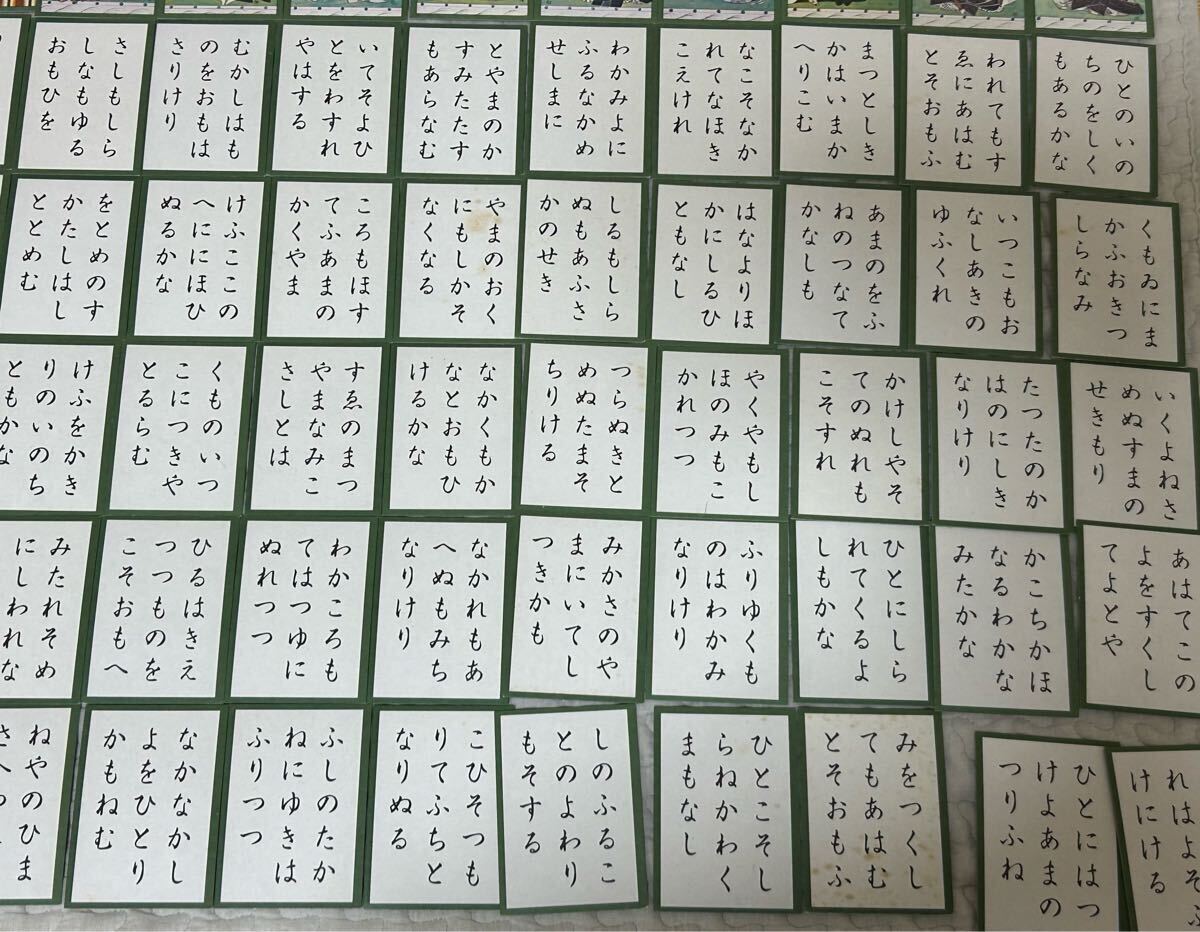 ひとのいの
ちのをしく
もあるかな
われてもす
ゑにあはむ
とそおもふ
まつとしき
かはいまか
へりこむ
なこそなか
れてなほき
こえけれ
わかみよに
ふるなかめ
せしまに
とやまのか
すみたたす
もあらなむ
いてそよひ
とをわすれ
やはする
むかしはも
のをおもは
さりけり
さしもしら
しなもゆる
おもひを
くもゐにま
かふおきつ
しらなみ
いつこもお
なしあきの
ゆふくれ
あまのをふ
ねのつなて
かなしも
はなよりほ
かにしるひ
ともなし
しるもしら
ぬもあふさ
かのせき
やまのおく
にもしかそ
なくなる
ころもほす
てふあまの
かくやま
けふここの
へににほひ
ぬるかな
をとめのす
かたしはし
ととめむ
いくよねさ
めぬすまの
せきもり
たつたのか
はのにしき
なりけり
かけしやそ
てのぬれも
こそすれ
やくやもし
ほのみもこ
かれつつ
つらぬきと
めぬたまそ
ちりける
なかくもか
なとおもひ
けるかな
すゑのまつ
やまなみこ
さしとは
くものいつ
こにつきや
とるらむ
けふをかき
りのいのち
ともかな
あはてこの
よをすくし
てよとや
かこちかほ
なるわかな
みたかな
ひとにしら
れてくるよ
しもかな
ふりゆくも
のはわかみ
なりけり
みかさのや
まにいてし
つきかも
なかれもあ
へぬもみち
なりけり
わかころも
てはつゆに
ぬれつつ
ひるはきえ
つつものを
こそおもへ
みたれそめ
にしわれな
れはよそふ
けにける
ひとにはつ
けよあまの
つりふね
みをつくし
てもあはむ
とそおもふ
ひとこそし
らねかわく
まもなし
しのふるこ
とのよわり
もそする
こひそつも
りてふちと
なりぬる
ふしのたか
ねにゆきは
ふりつつ
なかなかし
よをひとり
かもねむ
ねやのひま